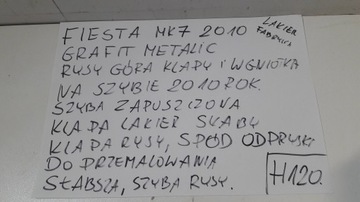 FIESTA MK7 2010
LAKIER FABRYCZ
GRAFIT METALIC
RYSY GÓRA KLAPY I WGNIOTKA
NA SZYBIE 2010 ROK.
SZYBA ZAPUSZCZONA
KLAPA LAKIER SŁABY
KLAPA RYSY, SPÓD ODPRYSKI
DO PRZEMALOWANIA
SŁABSZA, SZYBA RYSY.
H120.